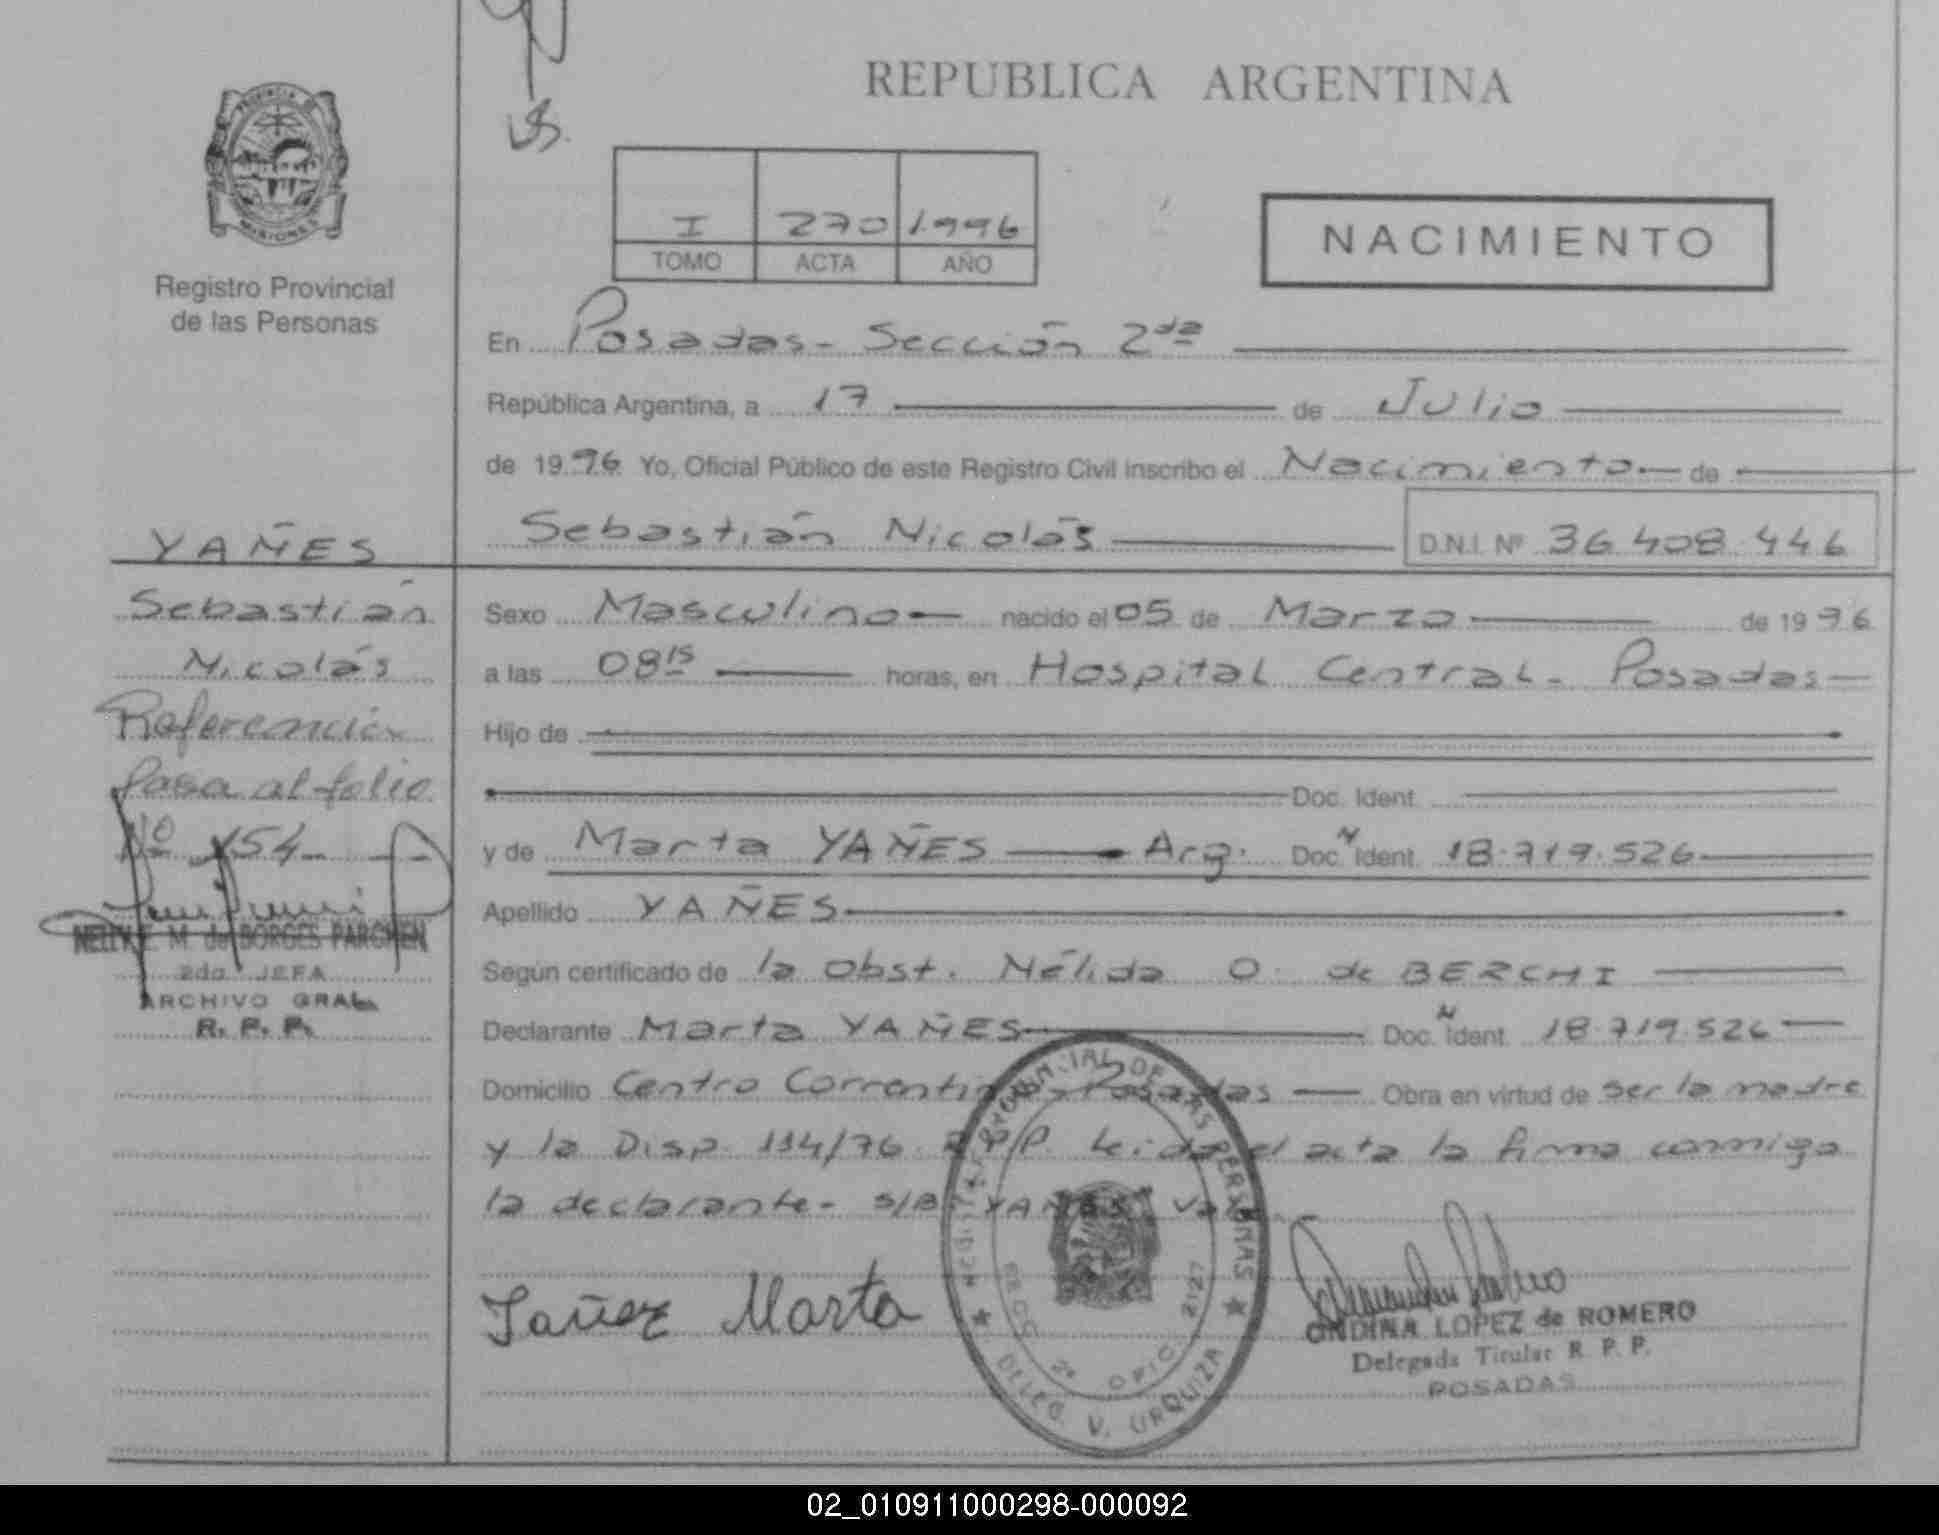 REPUBLICA ARGENTINA
PROVINCIA DE
MISIONES
Registro Provincial
de las Personas
I 270 1.996
TOMO ACTA AÑO
NACIMIENTO
En Posadas - Sección 2da
República Argentina, a 17 de Julio
de 1996 Yo, Oficial Público de este Registro Civil inscribo el Nacimiento de
Sebastián Nicolás D.N.I. Nº 36.408.446
YAÑES
Sebastián
Nicolás
Referencia
Pasa al folio
Nº 154
NELLY E. M. de BORGES
2da JEFA
ARCHIVO GRAL
R. P. P.
Sexo Masculino nacido el 05 de Marzo de 1996
a las 08 15 horas, en Hospital Central - Posadas
Hijo de
Doc. Ident.
y de Marta YAÑES Arg. Doc. N Ident. 18.719.526
Apellido YAÑES
Según certificado de la Obst. Nélida O. de BERCHI
Declarante Marta YAÑES Doc. N Ident. 18.719.526
Domicilio Centro Correntino - Posadas Obra en virtud de ser la madre
y la Disp. 114/76 R.P.P. Leída el acta la firma conmigo
la declarante - S/B: YAÑES: Vale
Yañez Marta
REGISTRO PROVINCIAL DE LAS PERSONAS
SECC. 2º OFIC. 2127
DELEG. V. URQUIZA
ONDINA LOPEZ de ROMERO
Delegada Titular R. P. P.
POSADAS
02_010911000298-000092